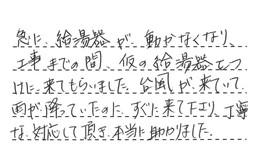 急に、給湯器が、動かなくなり、
工事までの間、仮の給湯器をつ
けに来てもらいました。台風が来ていて
雨が降っていたのに、すぐに来て下さり、丁寧
な対応して頂き、本当に助かりました。